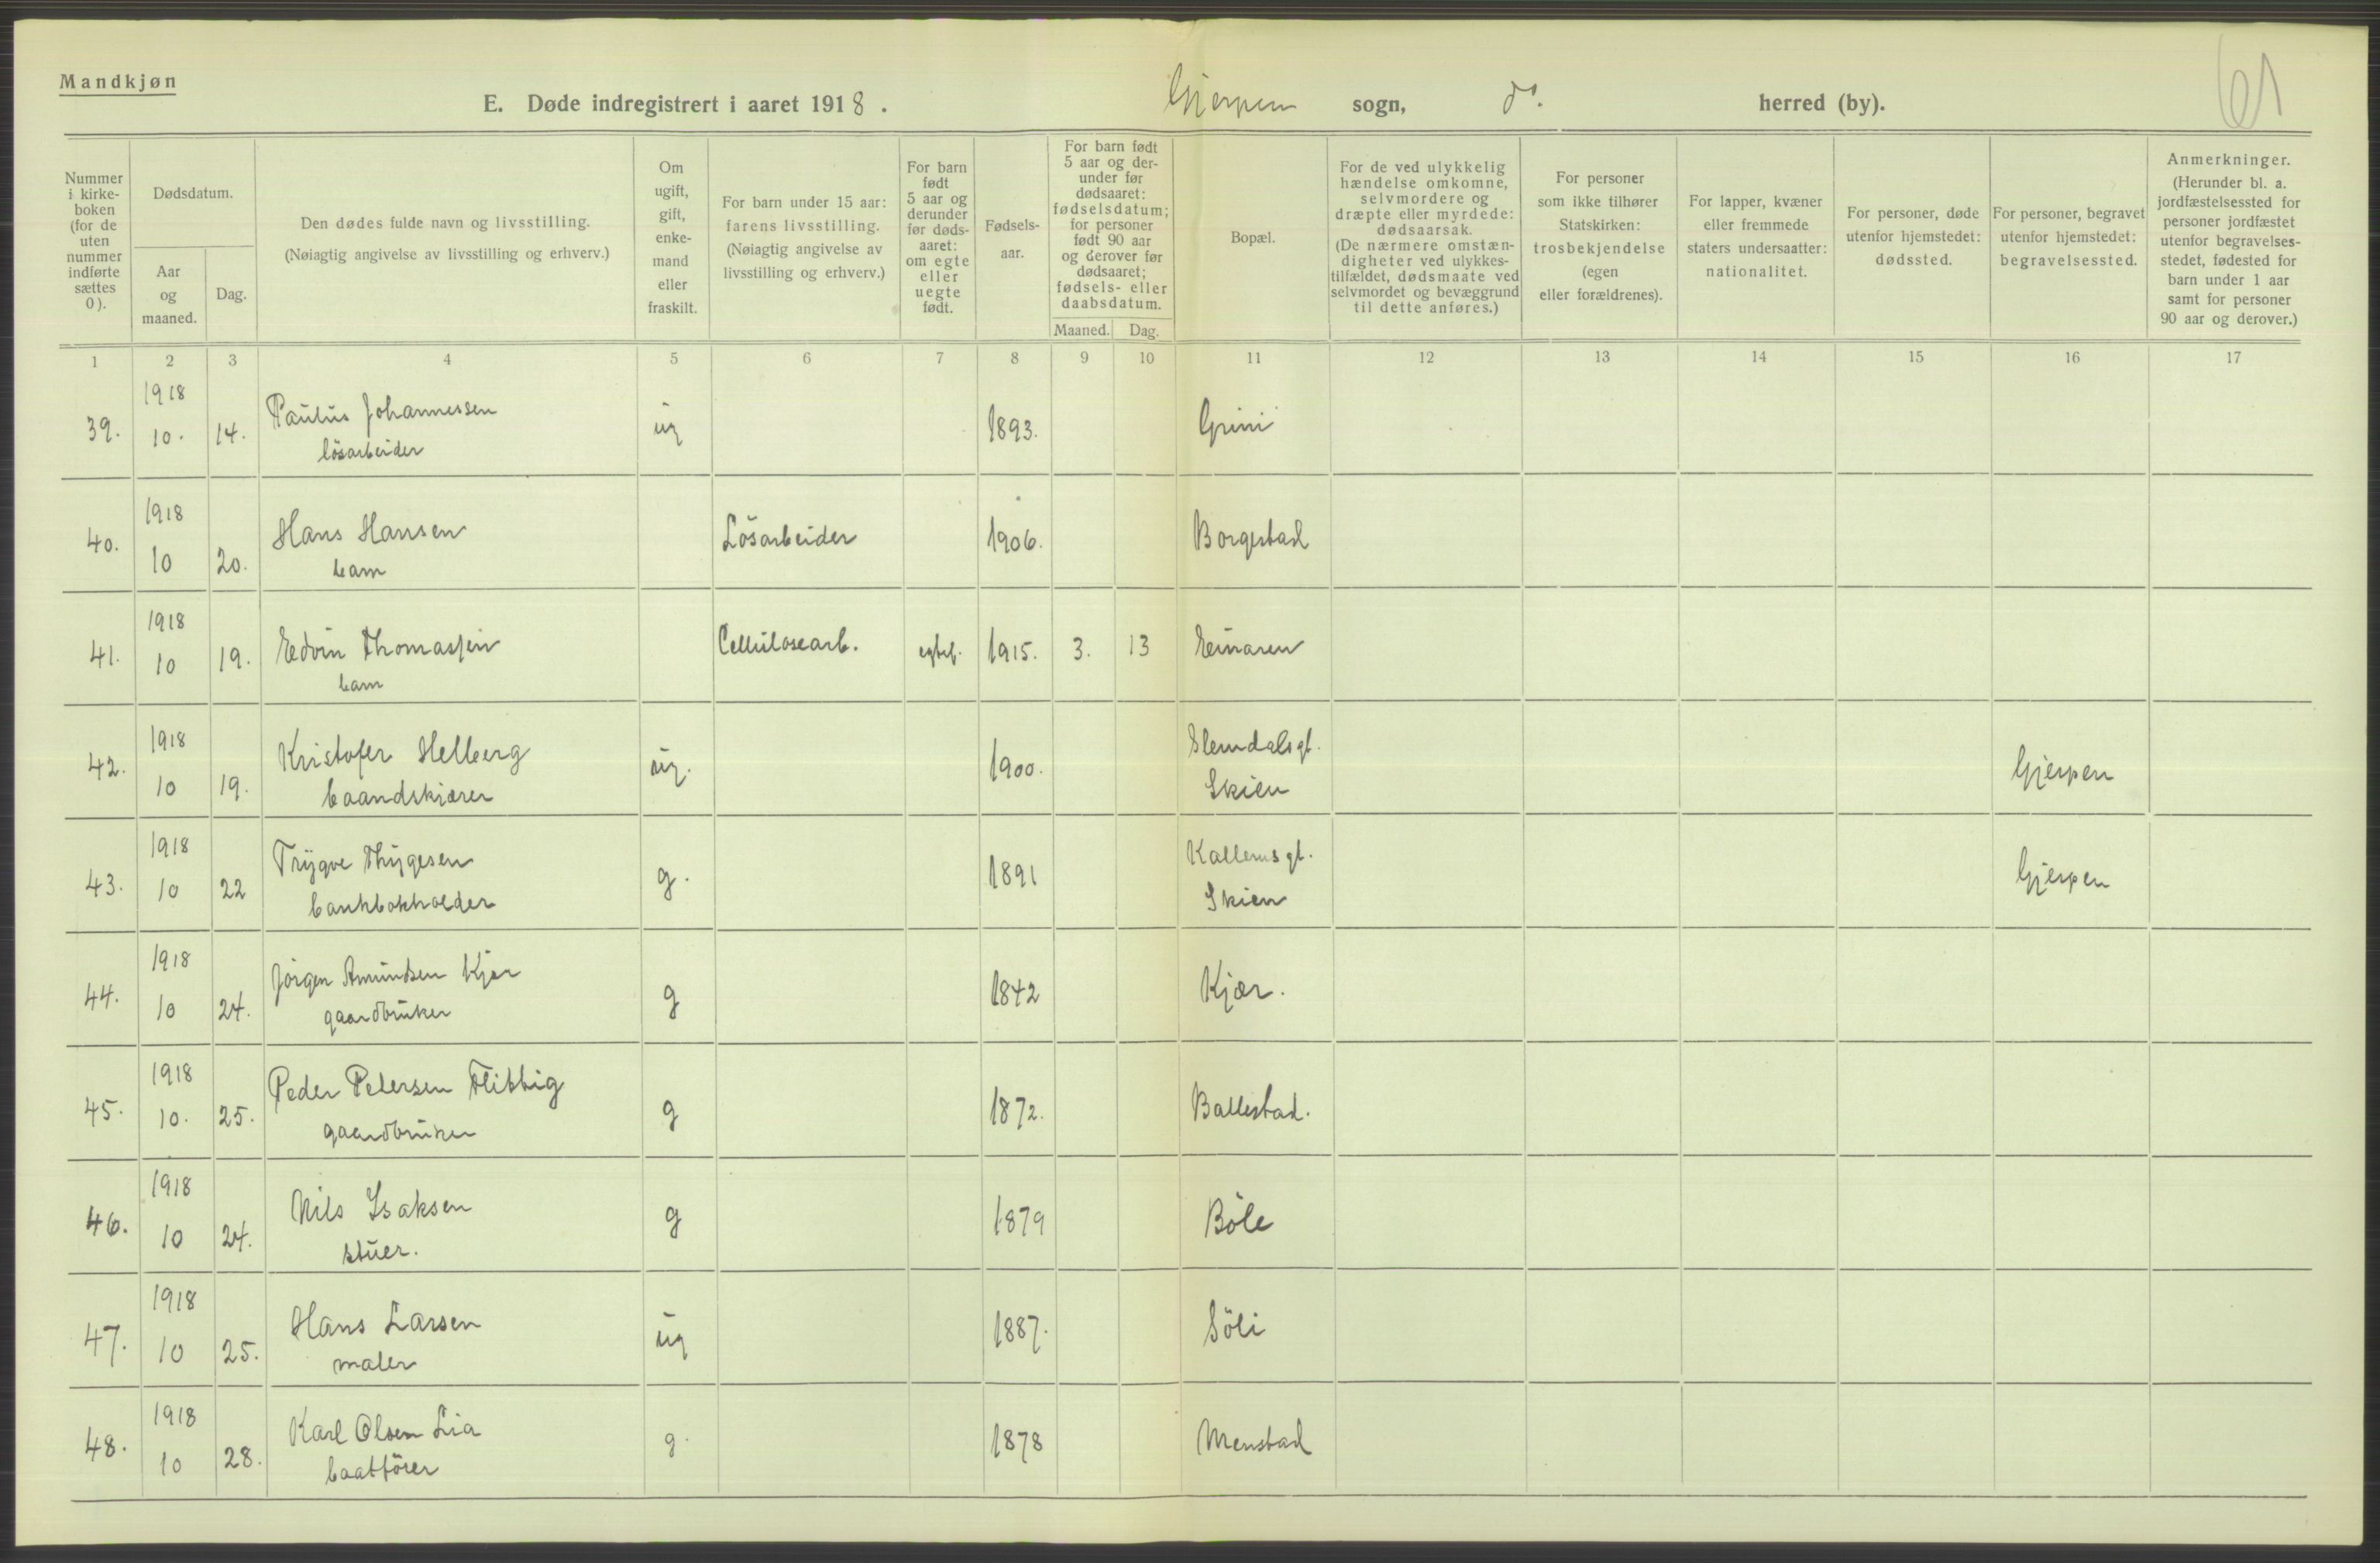 Mandkjøn
61
E. Døde indregistrert i aaret 1918.
Gjerpen sogn, do. herred (by).
Nummer
i kirke-
boken
(for de
uten
nummer
indførte
sættes
0).
Dødsdatum.
Aar
og
maaned.
Dag.
Den dødes fulde navn og livsstilling.
(Nøiagtig angivelse av livsstilling og erhverv.)
Om
ugift,
gift,
enke-
mand
eller
fraskilt.
For barn under 15 aar:
farens livsstilling.
(Nøiagtig angivelse av
livsstilling og erhverv.)
For barn
født
5 aar og
derunder
før døds-
aaret:
om egte
eller
uegte
født.
Fødsels-
aar.
For barn født
5 aar og der-
under før
dødsaaret:
fødselsdatum;
for personer
født 90 aar
og derover før
dødsaaret;
fødsels- eller
daabsdatum.
Maaned. Dag.
Bopæl.
For de ved ulykkelig
hændelse omkomne,
selvmordere og
dræpte eller myrdede:
dødsaarsak.
(De nærmere omstæn-
digheter ved ulykkes-
tilfældet, dødsmaate ved
selvmordet og bevæggrund
til dette anføres.)
For personer
som ikke tilhører
Statskirken:
trosbekjendelse
(egen
eller forældrenes).
For lapper, kvæner
eller fremmede
staters undersaatter:
nationalitet.
For personer, døde
utenfor hjemstedet:
dødssted.
For personer, begravet
utenfor hjemstedet:
begravelsessted.
Anmerkninger.
(Herunder bl. a.
jordfæstelsessted for
personer jordfæstet
utenfor begravelses-
stedet, fødested for
barn under 1 aar
samt for personer
90 aar og derover.)
1 2 3 4 5 6 7 8 9 10 11 12 13 14 15 16 17
1918
39. 10. 14. Paulus Johannessen ug 1893. Grini
lösarbeider
1918
40. 10 20. Hans Hansen Lösarbeider 1906. Borgestad
barn
1918
41. 10 19. Edvin Thomassen Cellulosearb. egtef. 1915. 3. 13 Einaren
barn
1918
42. 10 19. Kristofer Helberg ug. 1900. Slemdalsgt. Gjerpen
baandskjærer Skien
1918
43. 10 22 Trygve Thygesen g. 1891 Kallemsgt. Gjerpen
bankbokholder Skien
1918
44. 10 24. Jörgen Amundsen Kjær g 1842 Kjær.
gaardbruker
1918
45. 10. 25. Peder Petersen Flittig g 1872. Ballestad.
gaardbruker
1918
46. 10 24. Nils Isaksen g 1879 Böle
stuer.
1918
47. 10 25. Hans Larsen ug 1887. Söli
maler
1918
48. 10 28. Karl Olsen Lia g. 1878 Menstad
baatförer